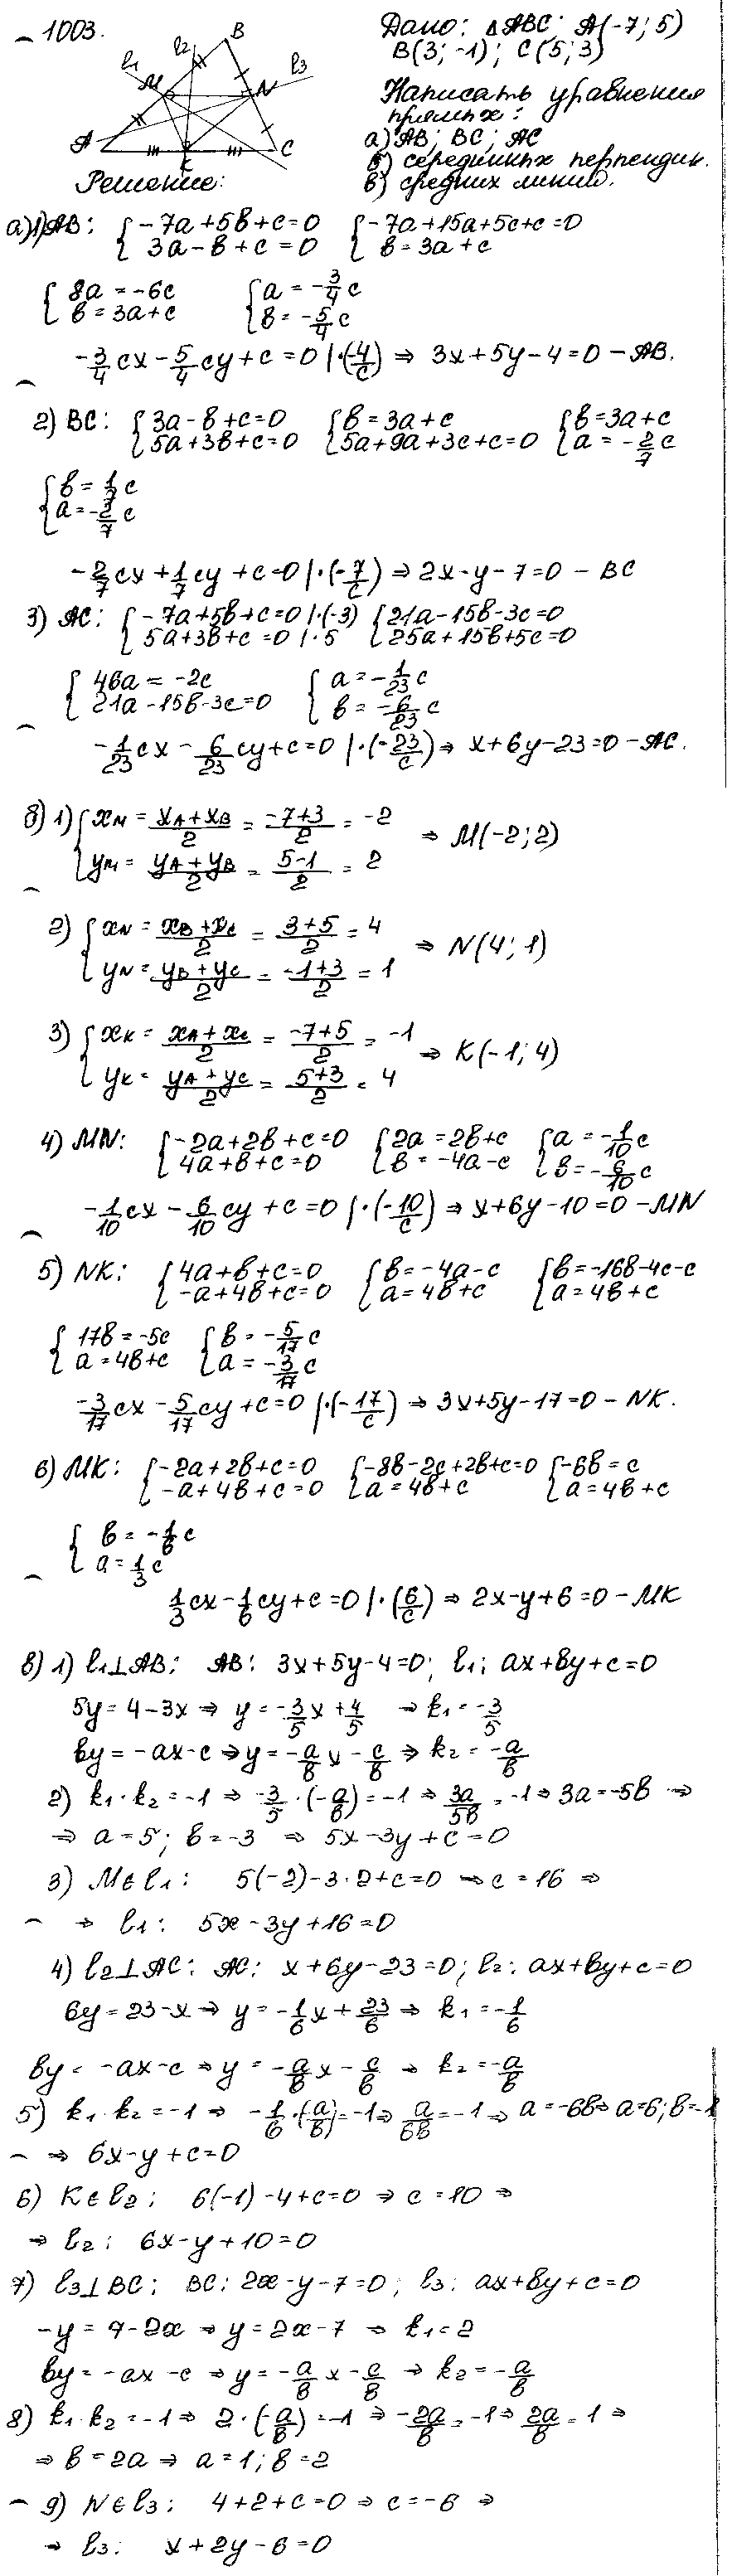 1003.
B
l₂
l₁
l₃
M
N
A
C
K
Дано: ΔABC; A(-7; 5)
B(3; -1); C(5; 3)
Написать уравнения
прямых:
а) AB; BC; AC
б) серединных перпендик.
в) средних линий.
Решение:
а) 1) AB: { -7a+5b+c=0 { -7a+15a+5c+c=0
3a-b+c=0 b=3a+c
{ 8a=-6c { a=-3/4 c
b=3a+c b=-5/4 c
-3/4 cx - 5/4 cy + c = 0 |·(-4/c) ⇒ 3x+5y-4=0 - AB.
2) BC: { 3a-b+c=0 { b=3a+c { b=3a+c
5a+3b+c=0 5a+9a+3c+c=0 a=-2/7 c
{ b=1/7 c
a=-2/7 c
-2/7 cx + 1/7 cy + c=0 |·(-7/c) ⇒ 2x-y-7=0 - BC
3) AC: { -7a+5b+c=0 |·(-3) { 21a-15b-3c=0
5a+3b+c=0 |·5 25a+15b+5c=0
{ 46a=-2c { a=-1/23 c
21a-15b-3c=0 b=-6/23 c
-1/23 cx - 6/23 cy+c=0 |·(-23/c) ⇒ x+6y-23=0 - AC.
б) 1) { xM = (xA+xB)/2 = (-7+3)/2 = -2 ⇒ M(-2; 2)
yM = (yA+yB)/2 = (5-1)/2 = 2
2) { xN = (xB+xC)/2 = (3+5)/2 = 4 ⇒ N(4; 1)
yN = (yB+yC)/2 = (-1+3)/2 = 1
3) { xK = (xA+xC)/2 = (-7+5)/2 = -1 ⇒ K(-1; 4)
yK = (yA+yC)/2 = (5+3)/2 = 4
4) MN: { -2a+2b+c=0 { 2a=2b+c { a=-1/10 c
4a+b+c=0 b=-4a-c b=-6/10 c
-1/10 cx - 6/10 cy + c = 0 |·(-10/c) ⇒ x+6y-10=0 - MN
5) NK: { 4a+b+c=0 { b=-4a-c { b=-16b-4c-c
-a+4b+c=0 a=4b+c a=4b+c
{ 17b=-5c { b=-5/17 c
a=4b+c a=-3/17 c
-3/17 cx - 5/17 cy + c=0 |·(-17/c) ⇒ 3x+5y-17=0 - NK.
6) MK: { -2a+2b+c=0 { -8b-2c+2b+c=0 { -6b=c
-a+4b+c=0 a=4b+c a=4b+c
{ b=-1/6 c
a=1/3 c
1/3 cx - 1/6 cy + c=0 |·(6/c) ⇒ 2x-y+6=0 - MK
в) 1) l₁⊥AB: AB: 3x+5y-4=0; l₁: ax+by+c=0
5y=4-3x ⇒ y=-3/5 x+4/5 ⇒ k₁=-3/5
by=-ax-c ⇒ y=-a/b x - c/b ⇒ k₂=-a/b
2) k₁·k₂=-1 ⇒ -3/5·(-a/b)=-1 ⇒ 3a/5b=-1 ⇒ 3a=-5b ⇒
⇒ a=5; b=-3 ⇒ 5x-3y+c=0
3) M∈l₁: 5(-2)-3·2+c=0 ⇒ c=16 ⇒
⇒ l₁: 5x-3y+16=0
4) l₂⊥AC: AC: x+6y-23=0; l₂: ax+by+c=0
6y=23-x ⇒ y=-1/6 x+23/6 ⇒ k₁=-1/6
by=-ax-c ⇒ y=-a/b x - c/b ⇒ k₂=-a/b
5) k₁·k₂=-1 ⇒ -1/6·(-a/b)=-1 ⇒ a/6b=-1 ⇒ a=-6b ⇒ a=6; b=-1
⇒ 6x-y+c=0
6) K∈l₂: 6(-1)-4+c=0 ⇒ c=10 ⇒
⇒ l₂: 6x-y+10=0
7) l₃⊥BC: BC: 2x-y-7=0; l₃: ax+by+c=0
-y=7-2x ⇒ y=2x-7 ⇒ k₁=2
by=-ax-c ⇒ y=-a/b x - c/b ⇒ k₂=-a/b
8) k₁·k₂=-1 ⇒ 2·(-a/b)=-1 ⇒ -2a/b=-1 ⇒ 2a/b=1 ⇒
⇒ b=2a ⇒ a=1; b=2
9) N∈l₃: 4+2+c=0 ⇒ c=-6 ⇒
⇒ l₃: x+2y-6=0